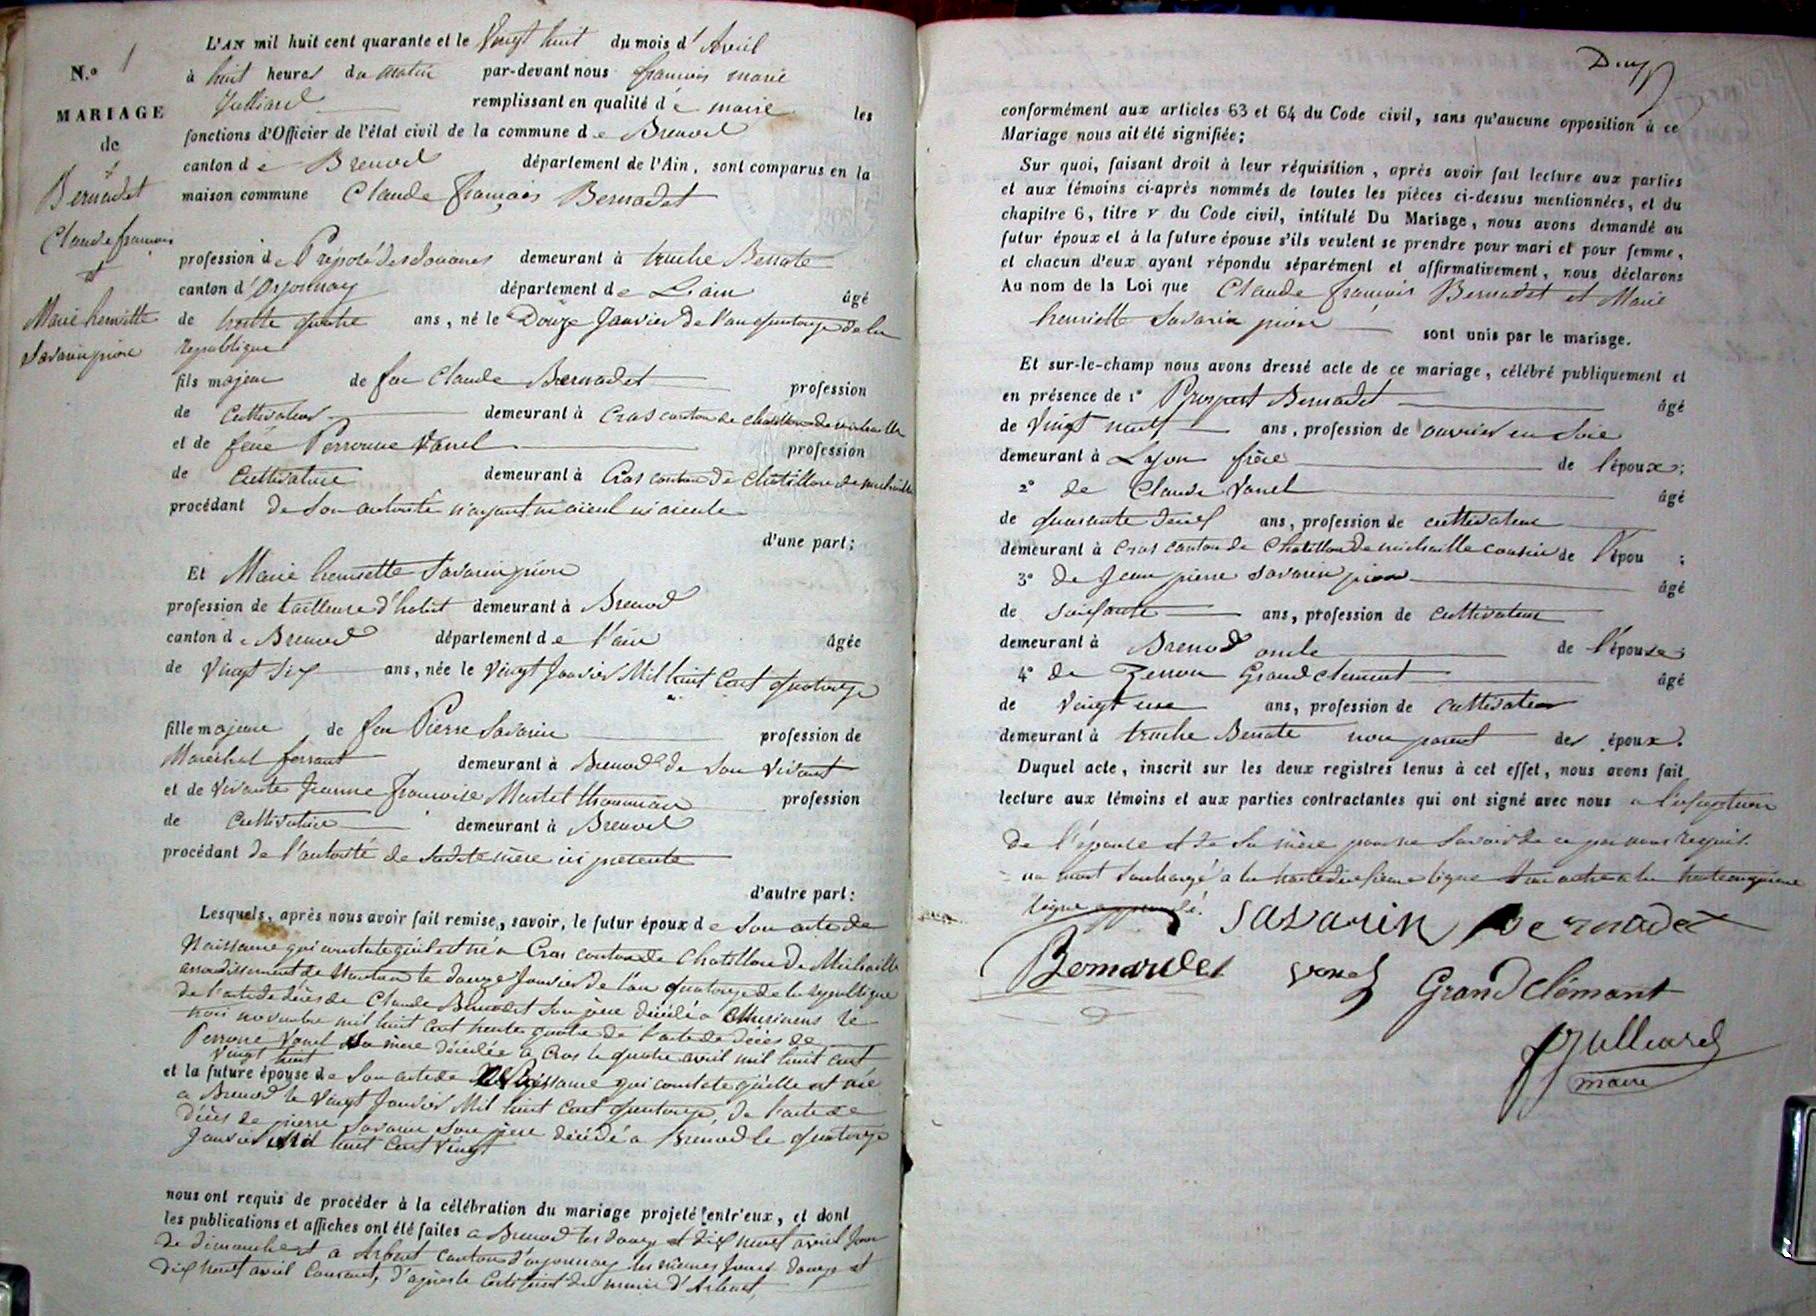 N.o 1
MARIAGE
de
Bernadet
Claude françois
et
Marie henriette
Savarin pion
L'AN mil huit cent quarante et le Vingt huit du mois d'Avril
à huit heures du matin par-devant nous françois marie
Julliard remplissant en qualité de maire les
fonctions d'Officier de l'état civil de la commune de Brenod
canton de Brenod département de l'Ain, sont comparus en la
maison commune Claude françois Bernadet
profession de Préposé des douanes demeurant à truche Benate
canton d'Oyonnax département de L'ain âgé
de trente quatre ans, né le Douze Janvier de l'an quatorze de la
republique
fils majeur de feu Claude Bernadet profession
de Cultivateur demeurant à Cras canton de Chatillon de michaille
et de feue Perronne Vanel profession
de Cultivatrice demeurant à Cras canton de Châtillon de michaille
procédant de Son autorité n'ayant ni aieul ni aieule
d'une part;
Et Marie henriette Savarin pion
profession de tailleuse d'habit demeurant à Brenod
canton de Brenod département de l'ain âgée
de Vingt Six ans, née le Vingt Janvier Mil huit Cent quatorze
fille majeure de feu Pierre Savarin profession de
Maréchal ferrant demeurant à Brenod de Son Vivant
et de Vivante Jeanne françoise Martel profession
de Cultivatrice demeurant à Brenod
procédant de l'autorité de Sadite mère ici présente
d'autre part:
Lesquels, après nous avoir fait remise, savoir, le futur époux de Son acte de
Naissance qui constate qu'il est né a Cras canton de Chatillon De Michaille
arrondissement de Nantua le douze Janvier de l'an quatorze de la republique
de l'acte de décès de Claude Bernadet Son père décédé a le
trois novembre mil huit cent trente quatre de l'acte de décès de
Perronne Vanel Sa mère décédée a Cras le quatre avril mil huit cent
Vingt huit
et la future épouse de Son acte de Naissance qui constate qu'elle est née
a Brenod le Vingt Janvier Mil huit Cent quatorze, de l'acte de
décès de pierre Savarin Son père décédé a Brenod le quatorze
Janvier Mil huit Cent Vingt
nous ont requis de procéder à la célébration du mariage projeté entr'eux, et dont
les publications et affiches ont été faites a Brenod les douze et dix neuf avril Jour
de dimanche et a Arbent canton d'oyonnax les mêmes Jours douze et
dix neuf avril Courant, d'après le Certificat du maire d'Arbent,
Deux
conformément aux articles 63 et 64 du Code civil, sans qu'aucune opposition à ce
Mariage nous ait été signifiée;
Sur quoi, faisant droit à leur réquisition, après avoir fait lecture aux parties
et aux témoins ci-après nommés de toutes les pièces ci-dessus mentionnées, et du
chapitre 6, titre v du Code civil, intitulé Du Mariage, nous avons demandé au
futur époux et à la future épouse s'ils veulent se prendre pour mari et pour femme,
et chacun d'eux ayant répondu séparément et affirmativement, nous déclarons
Au nom de la Loi que Claude françois Bernadet et Marie
henriette Savarin pion sont unis par le mariage.
Et sur-le-champ nous avons dressé acte de ce mariage, célébré publiquement et
en présence de 1° Prospert Bernadet âgé
de Vingt neuf ans, profession de ouvrier en Soie
demeurant à Lyon frère de l'époux;
2° de Claude Vanel âgé
de quarante deux ans, profession de cultivateur
demeurant à Cras canton de Chatillon De michaille cousin de l'épou ;
3° de Jean pierre Savarin pion âgé
de soixante ans, profession de cultivateur
demeurant à Brenod oncle de l'épouse;
4° de Zenon Grandclement âgé
de Vingt une ans, profession de cultivateur
demeurant à truche Benate non parent des époux.
Duquel acte, inscrit sur les deux registres tenus à cet effet, nous avons fait
lecture aux témoins et aux parties contractantes qui ont signé avec nous a l'exception
de l'épouse et de Sa mère pour ne Savoir de ce par nous requis.
un mot Surchargé a la trente dixieme ligne a la trente cinquieme
ligne approuvé.
Savarin Bernadet
Bernardet Vanel Grandclémant
Julliard
maire